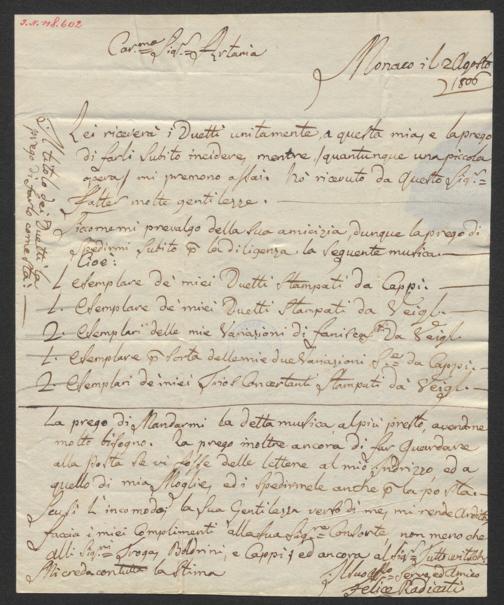 I.N. 118.602
Car:mo Sig:r Artaria
Monaco il 2 Agosto
1806
Lei riceverà i Duetti unitamente, a questa mia, e la prego
di farli Subito incidere, mentre, quantunque una piccola
opera, mi premono assai. Hò ricevuto da questo Sig:r
molte gentilezze.
prevalgo della Sua amicizia, dunque la prego di
Spedirmi Subito p la diligenza, la Seguente musica.
Cioè:
1. esemplare de' miei Duetti Stampati da Cappi.
1. Esemplare de' miei Duetti Stampati da Veigl.
2. esemplari delle mie Variazioni di Da Veigl.
1. esemplare p Sorta delle mie due Variazioni da Cappi.
2. Esemplari de' miei Trios Concertanti Stampati da Veigl.
La prego di Mandarmi la detta musica al più presto, avendone
molto bisogno. La prego inoltre ancora di far Guardare
alla Posta Se vi fosse delle lettere al mio Indrizzo ed a
quello di mia Moglie, ed i Spedirmele anche p la posta.
Scusi l'incomodo, la Sua Gentilezza verso di me, mi rende Ardito,
faccia i miei Complimenti alla Sua Sig:ra Consorte, non meno che
alli Sig:ri Troga, Bolderini, e Cappi, ed ancora al Sig:r
Mi creda con tutta la Stima
Servo, ed Amico
Felice Radicati
Il titolo dei Duetti la
prego di farlo come stà.